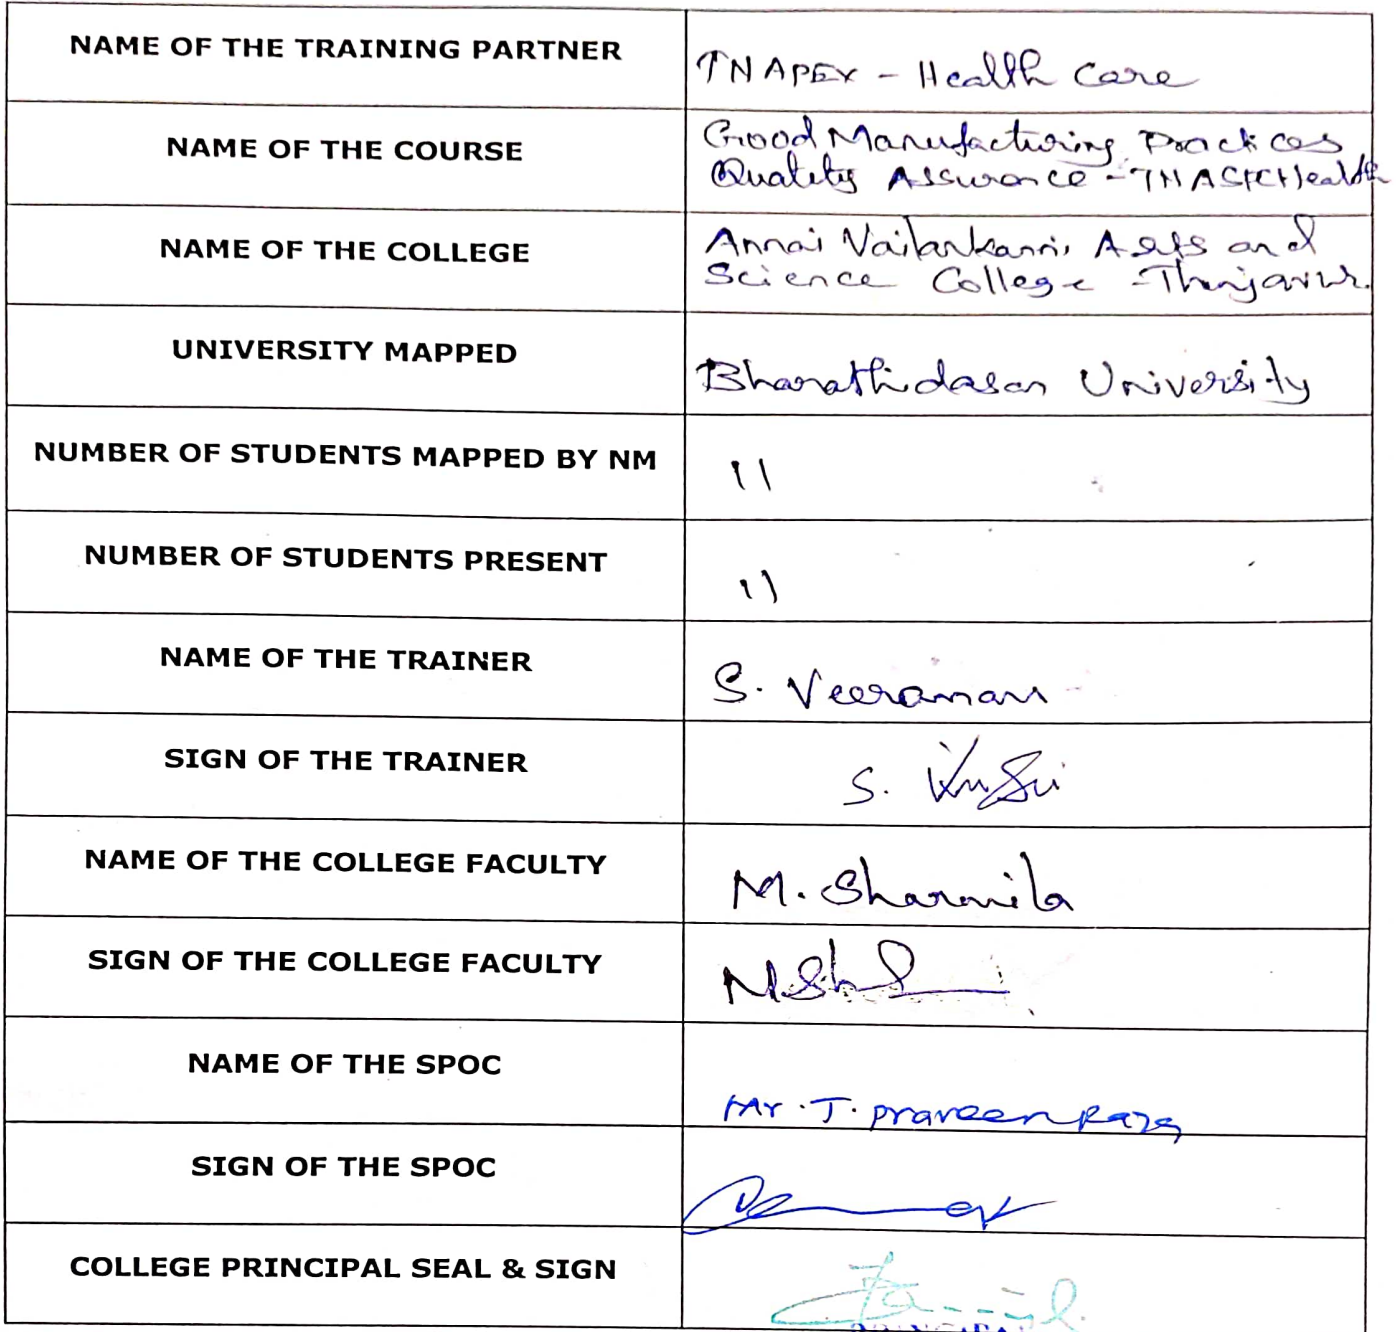 NAME OF THE TRAINING PARTNER
TNAPEX - Health Care
NAME OF THE COURSE
Good Manufacturing Practices
Quality Assurance -
NAME OF THE COLLEGE
Annai Vailankanni Arts and
Science College - Thanjavur.
UNIVERSITY MAPPED
Bharathidasan University
NUMBER OF STUDENTS MAPPED BY NM
11
NUMBER OF STUDENTS PRESENT
11
NAME OF THE TRAINER
S. Veeramani
SIGN OF THE TRAINER
S.
NAME OF THE COLLEGE FACULTY
M. Sharmila
SIGN OF THE COLLEGE FACULTY
NAME OF THE SPOC
Mr. T. Praveen Raja
SIGN OF THE SPOC
COLLEGE PRINCIPAL SEAL & SIGN